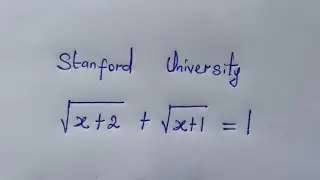 Stanford University
√x+2 + √x+1 = 1